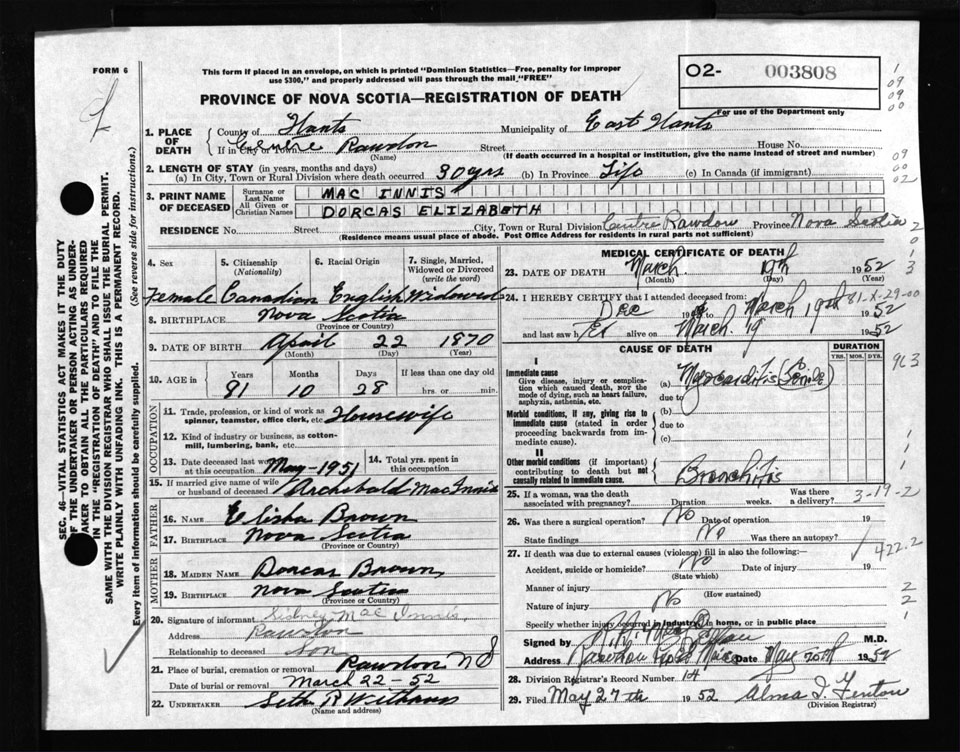 FORM 6
This form if placed in an envelope, on which is printed "Dominion Statistics—Free, penalty for improper
use $300," and properly addressed will pass through the mail "FREE"
O2- 003808
For use of the Department only
PROVINCE OF NOVA SCOTIA—REGISTRATION OF DEATH
1. PLACE OF DEATH
County of Hants Municipality of East Hants
If in City or Town Centre Rawdon Street House No.
(Name) (If death occurred in a hospital or institution, give the name instead of street and number)
2. LENGTH OF STAY (in years, months and days)
(a) In City, Town or Rural Division where death occurred 30 yrs (b) In Province Life (c) In Canada (if immigrant)
3. PRINT NAME OF DECEASED
Surname or Last Name MAC INNIS
All Given or Christian Names DORCAS ELIZABETH
RESIDENCE No. Street City, Town or Rural Division Centre Rawdon Province Nova Scotia
(Residence means usual place of abode. Post Office Address for residents in rural parts not sufficient)
4. Sex 5. Citizenship (Nationality) 6. Racial Origin 7. Single, Married, Widowed or Divorced (write the word)
Female Canadian English Widowed
8. BIRTHPLACE Nova Scotia
(Province or Country)
9. DATE OF BIRTH April 22 1870
(Month) (Day) (Year)
10. AGE in Years Months Days If less than one day old
81 10 28 hrs. or min.
OCCUPATION
11. Trade, profession, or kind of work as spinner, teamster, office clerk, etc. Housewife
12. Kind of industry or business, as cotton-mill, lumbering, bank, etc.
13. Date deceased last worked at this occupation May-1951 14. Total yrs. spent in this occupation
15. If married give name of wife or husband of deceased Archibald MacInnis
FATHER
16. NAME Elisha Brown
17. BIRTHPLACE Nova Scotia
(Province or Country)
MOTHER
18. MAIDEN NAME Dorcas Brown
19. BIRTHPLACE Nova Scotia
(Province or Country)
20. Signature of informant Sidney Mac Innis
Address Rawdon
Relationship to deceased Son
21. Place of burial, cremation or removal Rawdon N S
Date of burial or removal March 22-52
22. UNDERTAKER Seth R
(Name and address)
MEDICAL CERTIFICATE OF DEATH
23. DATE OF DEATH March 19th 1952
(Month) (Day) (Year)
24. I HEREBY CERTIFY that I attended deceased from:
Dec to March 19th 1952
81-X-29-00
and last saw her alive on March 19 1952
CAUSE OF DEATH DURATION
YRS. MOS. DYS.
I
Immediate cause
Give disease, injury or complication which caused death, NOT the mode of dying, such as heart failure, asphyxia, asthenia, etc.
(a) Myocarditis
due to
Morbid conditions, if any, giving rise to immediate cause (stated in order proceeding backwards from immediate cause).
(b)
due to
(c)
II
Other morbid conditions (if important) contributing to death but not causally related to immediate cause.
Bronchitis
25. If a woman, was the death associated with pregnancy? Duration weeks. Was there a delivery?
3-19-2
26. Was there a surgical operation? No Date of operation 19
State findings No Was there an autopsy?
422.2
27. If death was due to external causes (violence) fill in also the following:—
Accident, suicide or homicide? No Date of injury 19
(State which)
Manner of injury
(How sustained)
Nature of injury No
Specify whether injury occurred in industry, in home, or in public place
Signed by M.D.
Address Date May 20th 1952
28. Division Registrar's Record Number 14
29. Filed May 27th 1952 Alma I. Fenton
(Division Registrar)
SEC. 46—VITAL STATISTICS ACT MAKES IT THE DUTY
OF THE UNDERTAKER OR PERSON ACTING AS UNDERTAKER
TO OBTAIN ALL THE PARTICULARS REQUIRED
IN THE "REGISTRATION OF DEATH" AND TO FILE THE
SAME WITH THE DIVISION REGISTRAR WHO SHALL ISSUE THE BURIAL PERMIT.
WRITE PLAINLY WITH UNFADING INK. THIS IS A PERMANENT RECORD.
Every item of information should be carefully supplied. (See reverse side for instructions.)